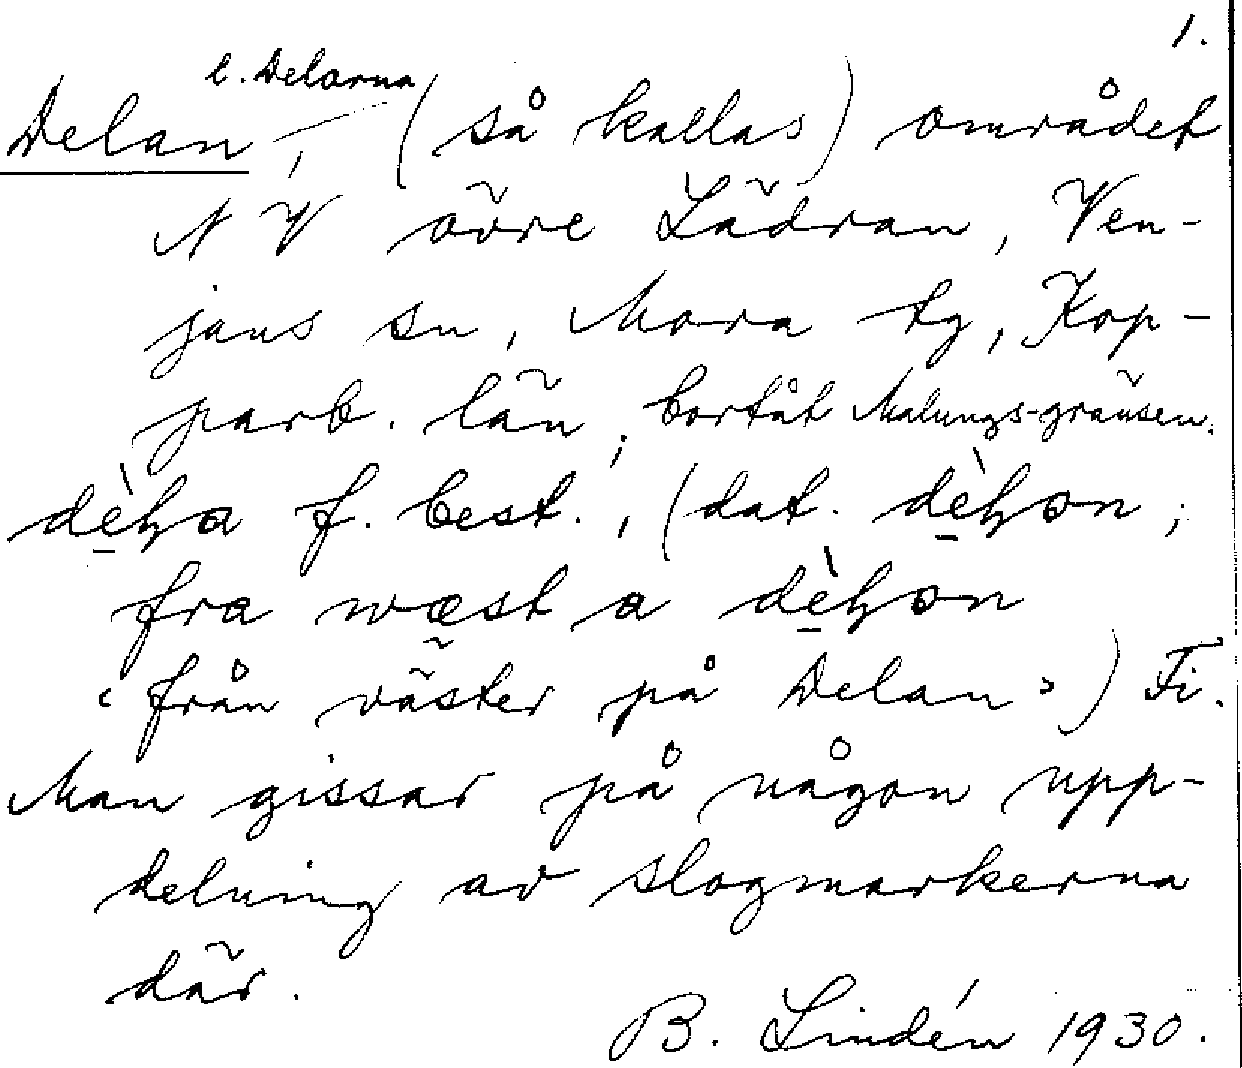 1.
l. Delarna
Delan, (så kallas) området
NV övre Lädran, Ven-
jans sn, Mora tg, Kop-
parb. län, bortåt Malungs-gränsen.
dèɧa f. best., (dat. dèɧon;
fra wæst a dèɧon
‹från väster på Delan›) Fi.
Man gissar på någon upp-
delning av slogmarkerna
där.
B. Lindén 1930.